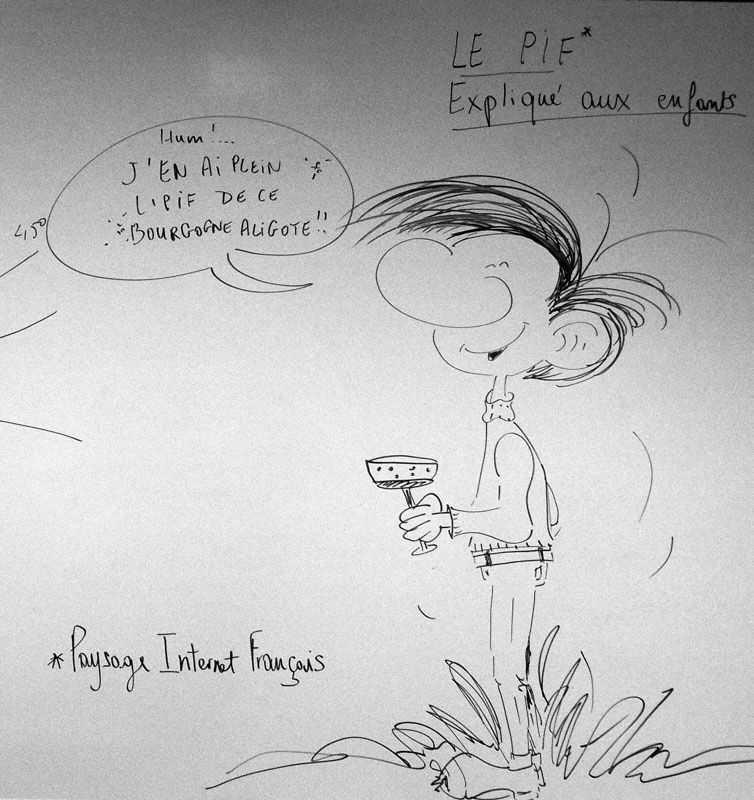 LE PIF*
Expliqué aux enfants
Hum!...
J'EN Ai PLEIN
L'PiF DE CE
BOURGOGNE ALIGOTE!!
*Paysage Internet Français